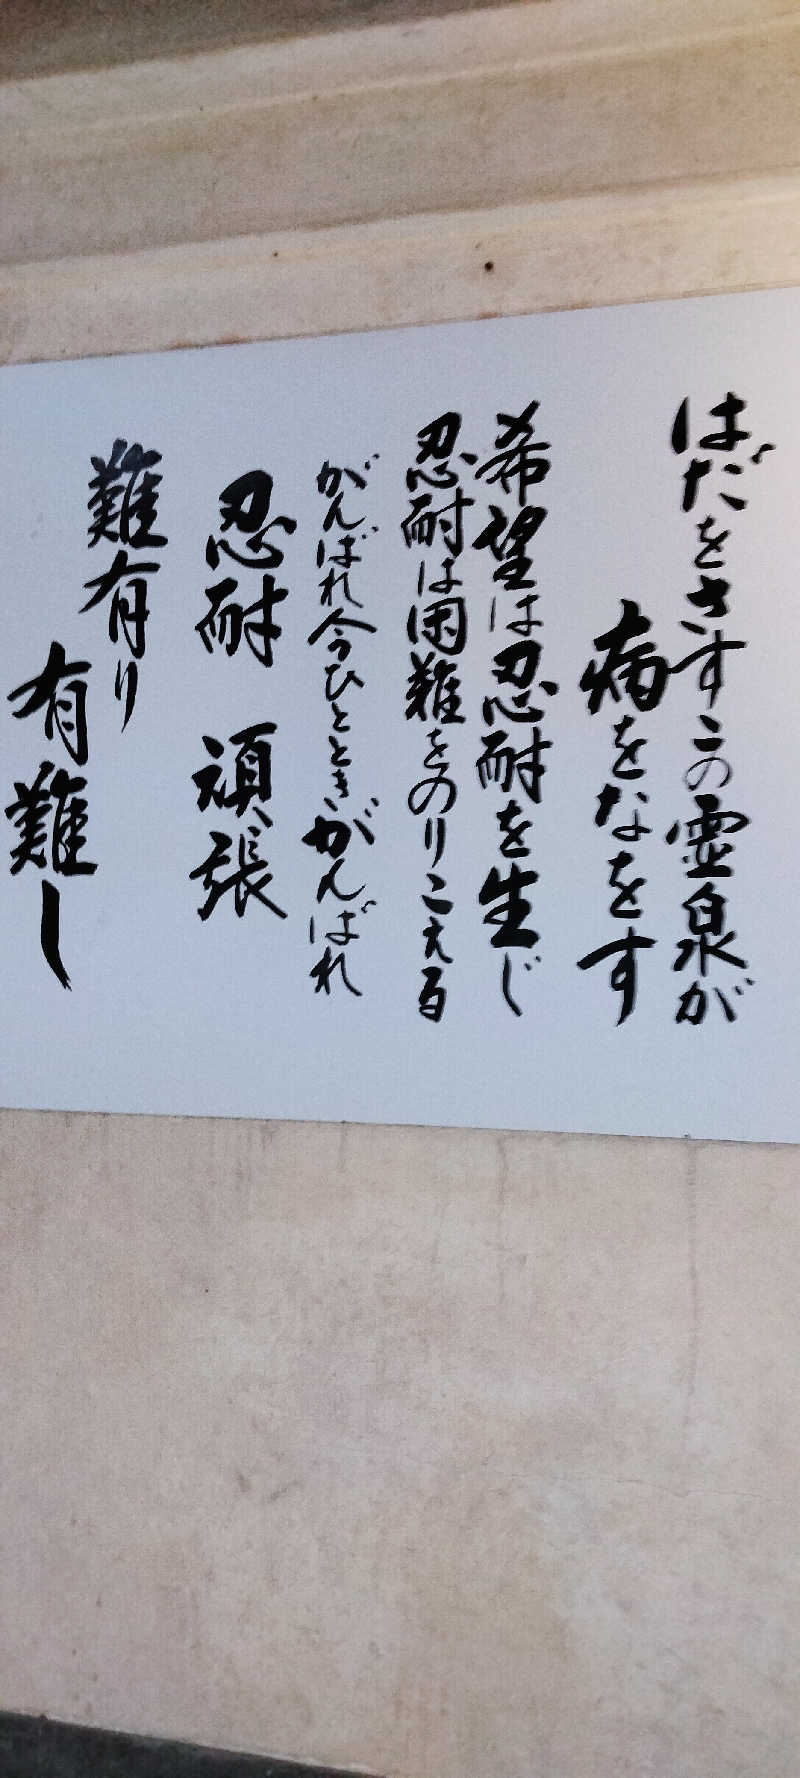 はだをさすこの霊泉が
病をなをす
希望は忍耐を生じ
忍耐は困難をのりこえる
がんばれ今ひとときがんばれ
忍耐 頑張
難有り
有難し